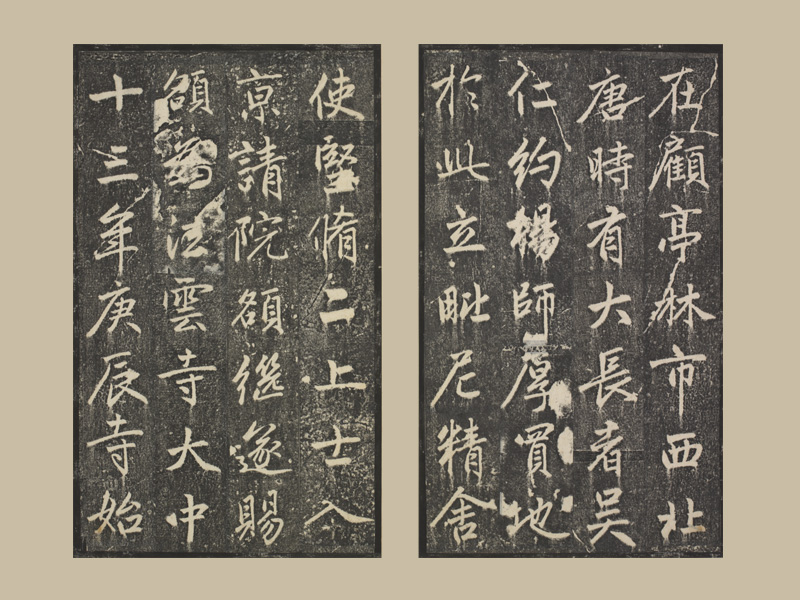 在顧亭林市西北
唐時有大長者吳
仁約楊師厚買地
於此立毗尼精舍
使堅脩二上士入
京請院額繼遂賜
額為法雲寺大中
十三年庚辰寺始